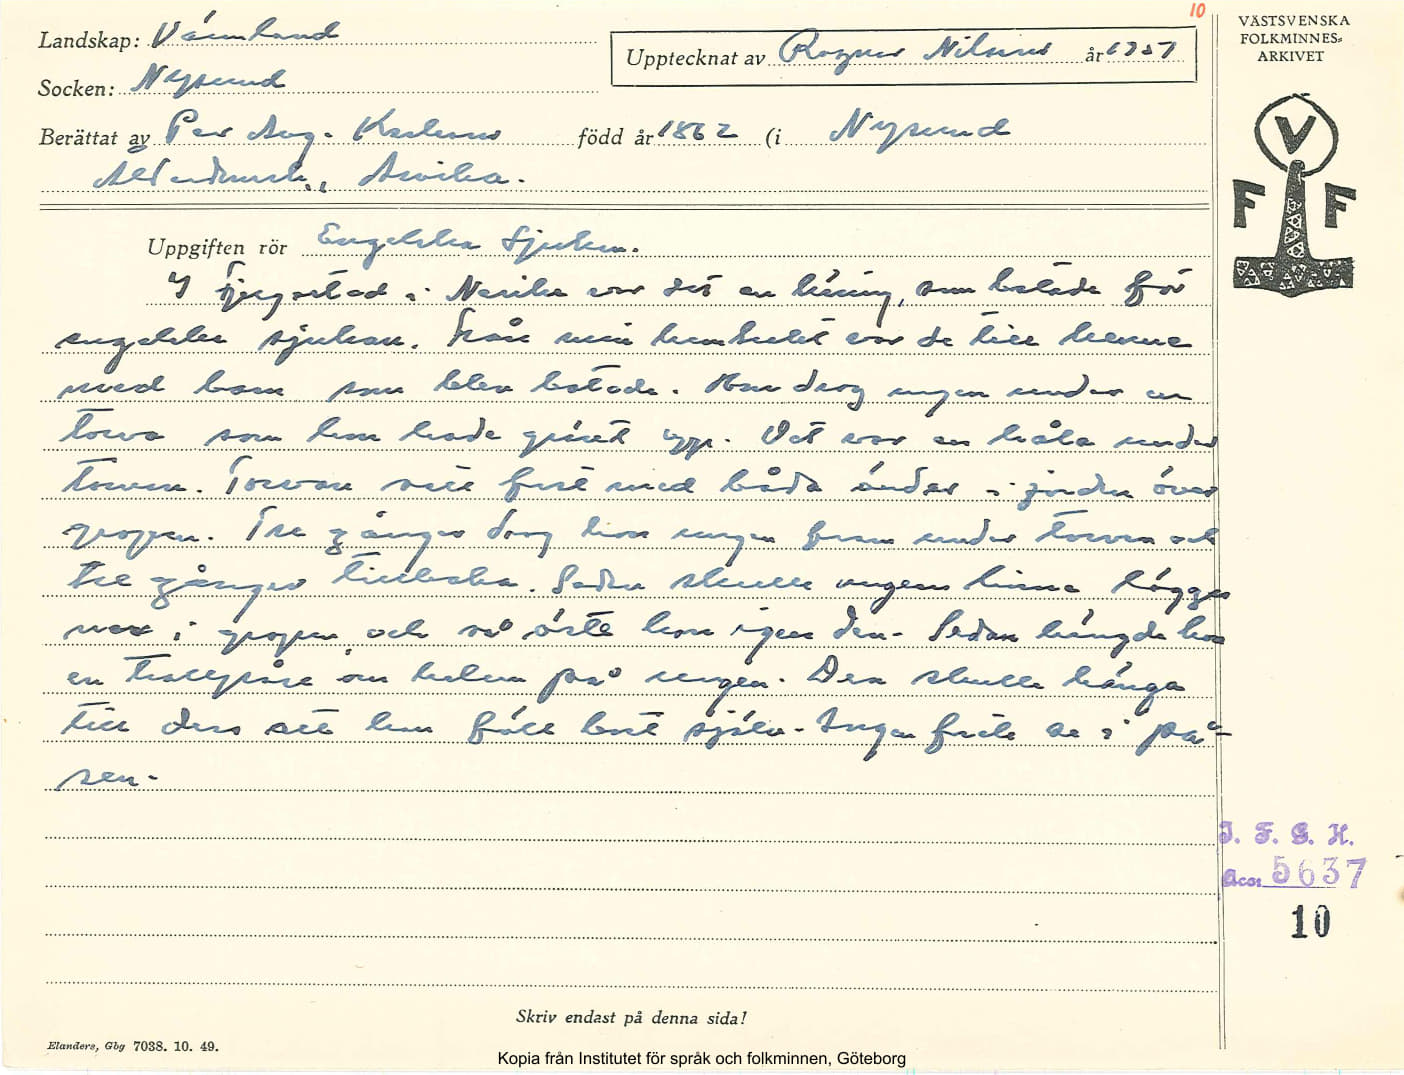 10
Landskap: Värmland
Socken: Nysund
Upptecknat av Ragnar Nilsson år 1951
Berättat av Per Aug. Karlsson född år 1862 (i Nysund
Arvika.
VÄSTSVENSKA
FOLKMINNES-
ARKIVET
V
F F
Uppgiften rör Engelska sjukan.
I i Närike var det en käring, som botade för
engelska sjukan. Från min hembyggd var de till henne
med barn som blev botade. Hon drog ungen under en
torva som hon hade grävt upp. Det var en håla under
torven. Torvan satt fast med båda ändar i jorden över
gropen. Tre gånger drog hon ungen fram under torven och
tre gånger tillbaka. Sedan skulle ungens linne läggas
ner i gropen, och så öste hon igen den. Sedan hängde hon
en trollpåse om halsen på ungen. Den skulle hänga
till dess att han föll bort själv. Ingen fick se i på-
sen.
I. F. G. H.
Acc. 5637
10
Skriv endast på denna sida!
Elanders, Gbg 7038. 10. 49.
Kopia från Institutet för språk och folkminnen, Göteborg